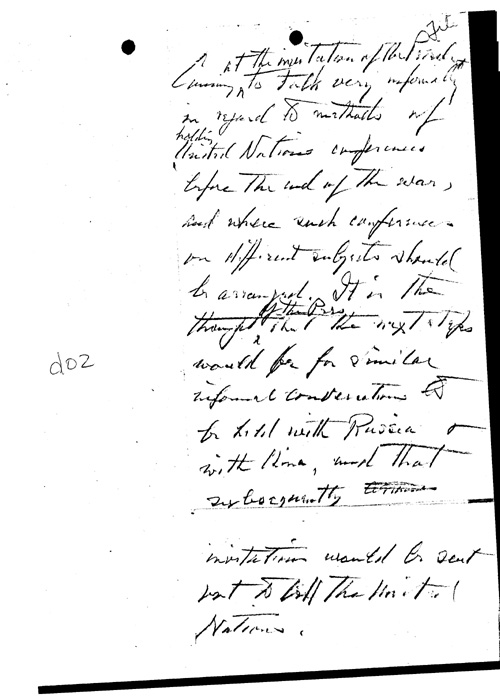 at the invitation of the
to talk very informally
in regard to methods of
holding
United Nations conferences
before the end of the war,
and where such conferences
on different subjects should
be arranged. It is the
thought of the Pres that the next steps
would be for similar
informal conversations to
be held with Russia &
with China, and that
subsequently
invitations would be sent
out to all the United
Nations.
d02